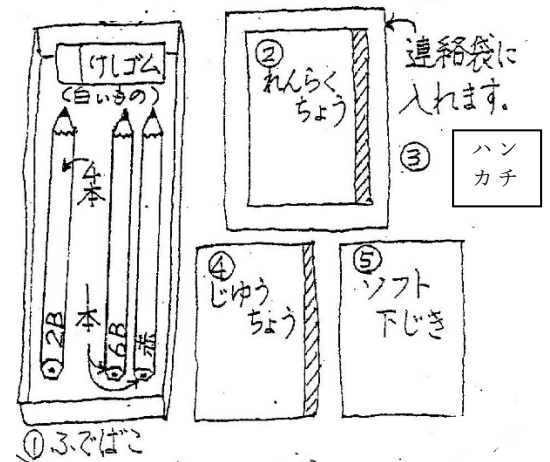 けしゴム
(白いもの)
4本
2B
一本
6B
赤
①ふでばこ
②
れんらく
ちょう
連絡袋に
入れます。
③
ハン
カチ
④
じゆう
ちょう
⑤
ソフト
下じき